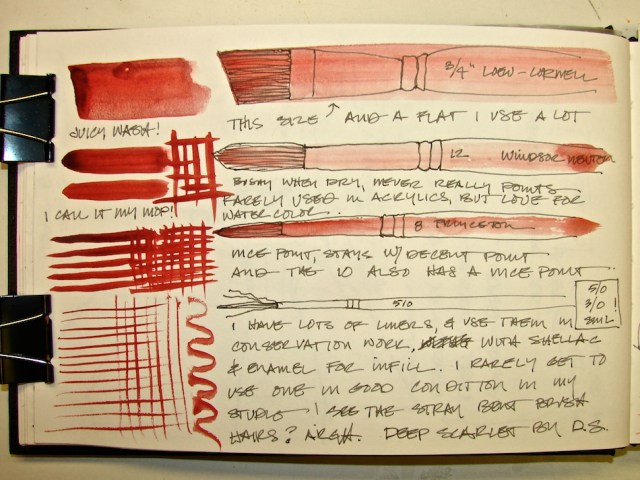 3/4" LOEW-CORNELL
JUICY WASH!
THIS SIZE ↗ AND A FLAT I USE A LOT
12 WINDSOR NEWTON
BUSHY WHEN DRY, NEVER REALLY POINTS
RARELY USED IN ACRYLICS, BUT LOVE FOR
WATERCOLOR.
I CALL IT MY MOP!
8 PRINCETON
NICE POINT, STAYS W/ DECENT POINT
AND THE 10 ALSO HAS A NICE POINT
5/0
5/0
3/0 !
SML!
I HAVE LOTS OF LINERS, & USE THEM IN
CONSERVATION WORK, WITH SHELLAC
& ENAMEL FOR INFILL. I RARELY GET TO
USE ONE IN GOOD CONDITION IN MY
STUDIO I SEE THE STRAY BENT BRUSH
HAIRS? ARGH. DEEP SCARLET BY D.S.